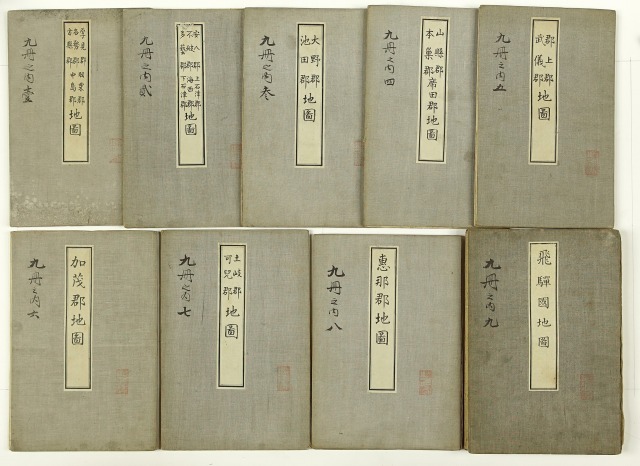 地圖
九冊之内壹
安八郡 上石津郡
不破郡 海西郡
多藝郡 下石津郡
地圖
九冊之内貳
大野郡
池田郡
地圖
九冊之内参
山縣郡
本巢郡席田郡
地圖
九冊之内四
郡上郡
武儀郡
地圖
九冊之内五
加茂郡地圖
九冊之内六
土岐郡
可兒郡
地圖
九冊之内七
惠那郡地圖
九冊之内八
飛驒國地圖
九冊之内九